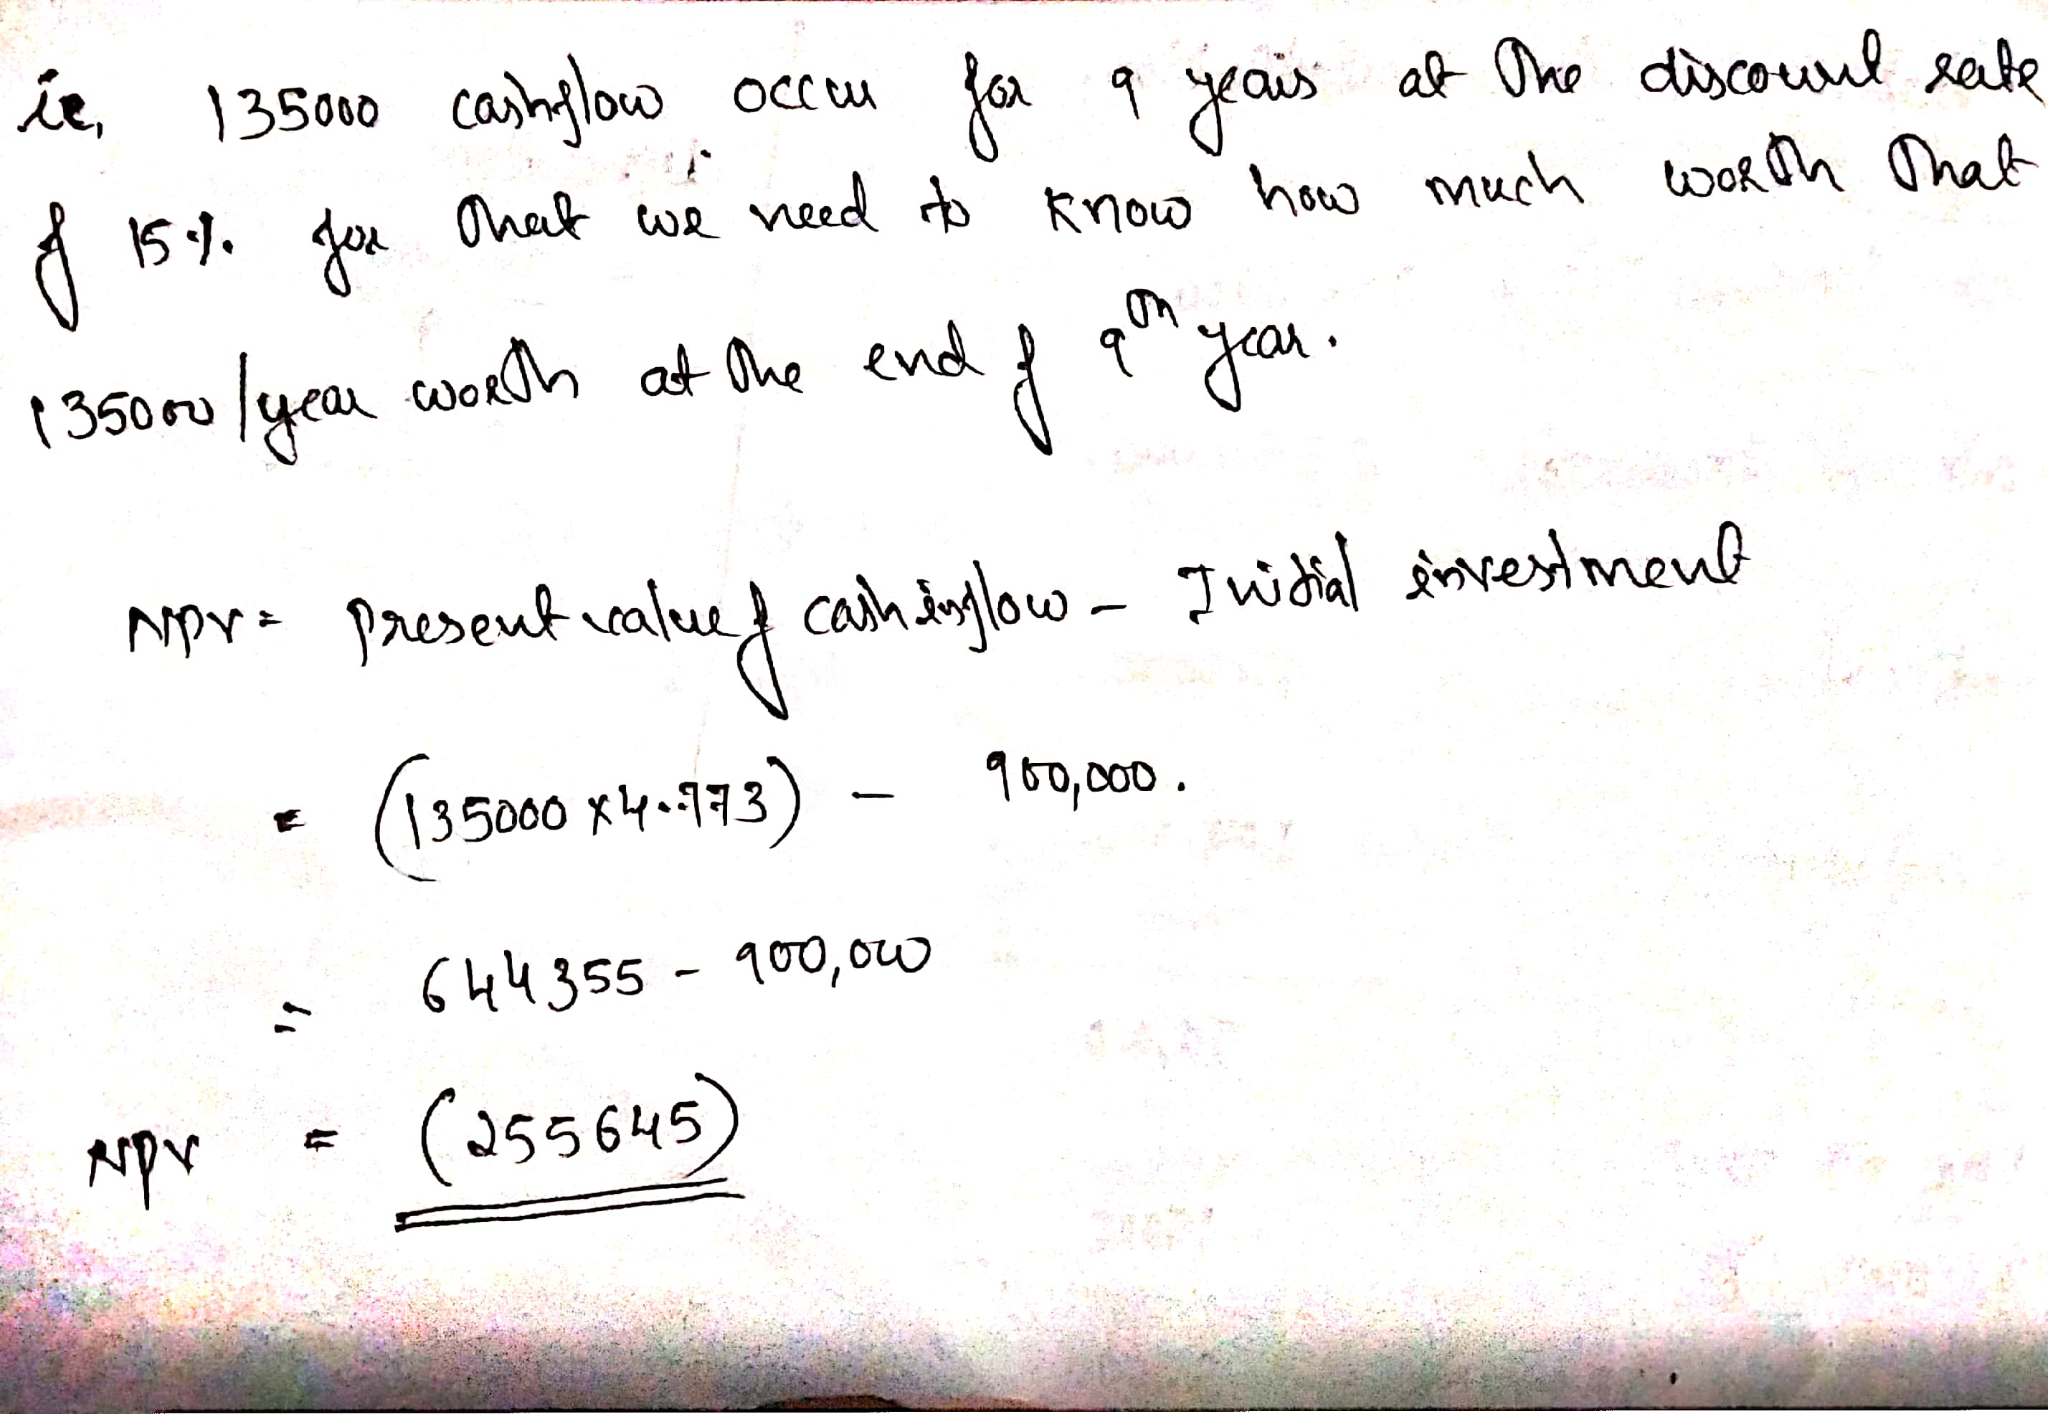 ie, 135000 cashflow occur for 9 years at the discount rate
of 15% for that we need to know how much worth that
135000/year worth at the end of 9th year.
NPV = present value of cash inflow - Initial investment
= (135000 x 4.773) - 900,000.
= 644355 - 900,000
NPV = (255645)